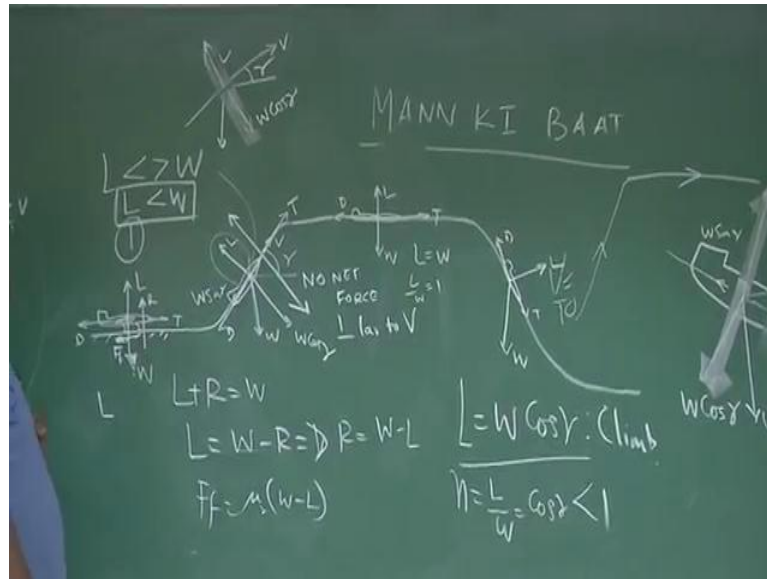 V
γ
W cos γ
MANN KI BAAT
L < > W
L < W
1
V
L
R
D
T
Ff
W
T
V
L
γ
W sin γ
D
W
W cos γ
NO NET
FORCE
⊥ lar to V
D
L
T
W
L = W
L/W = 1
D
T
W
TO
W sin γ
W cos γ
L
L + R = W
L = W - R = D R = W - L
Ff = μ(W - L)
L = W Cos γ : Climb
n = L/W = Cos γ < 1